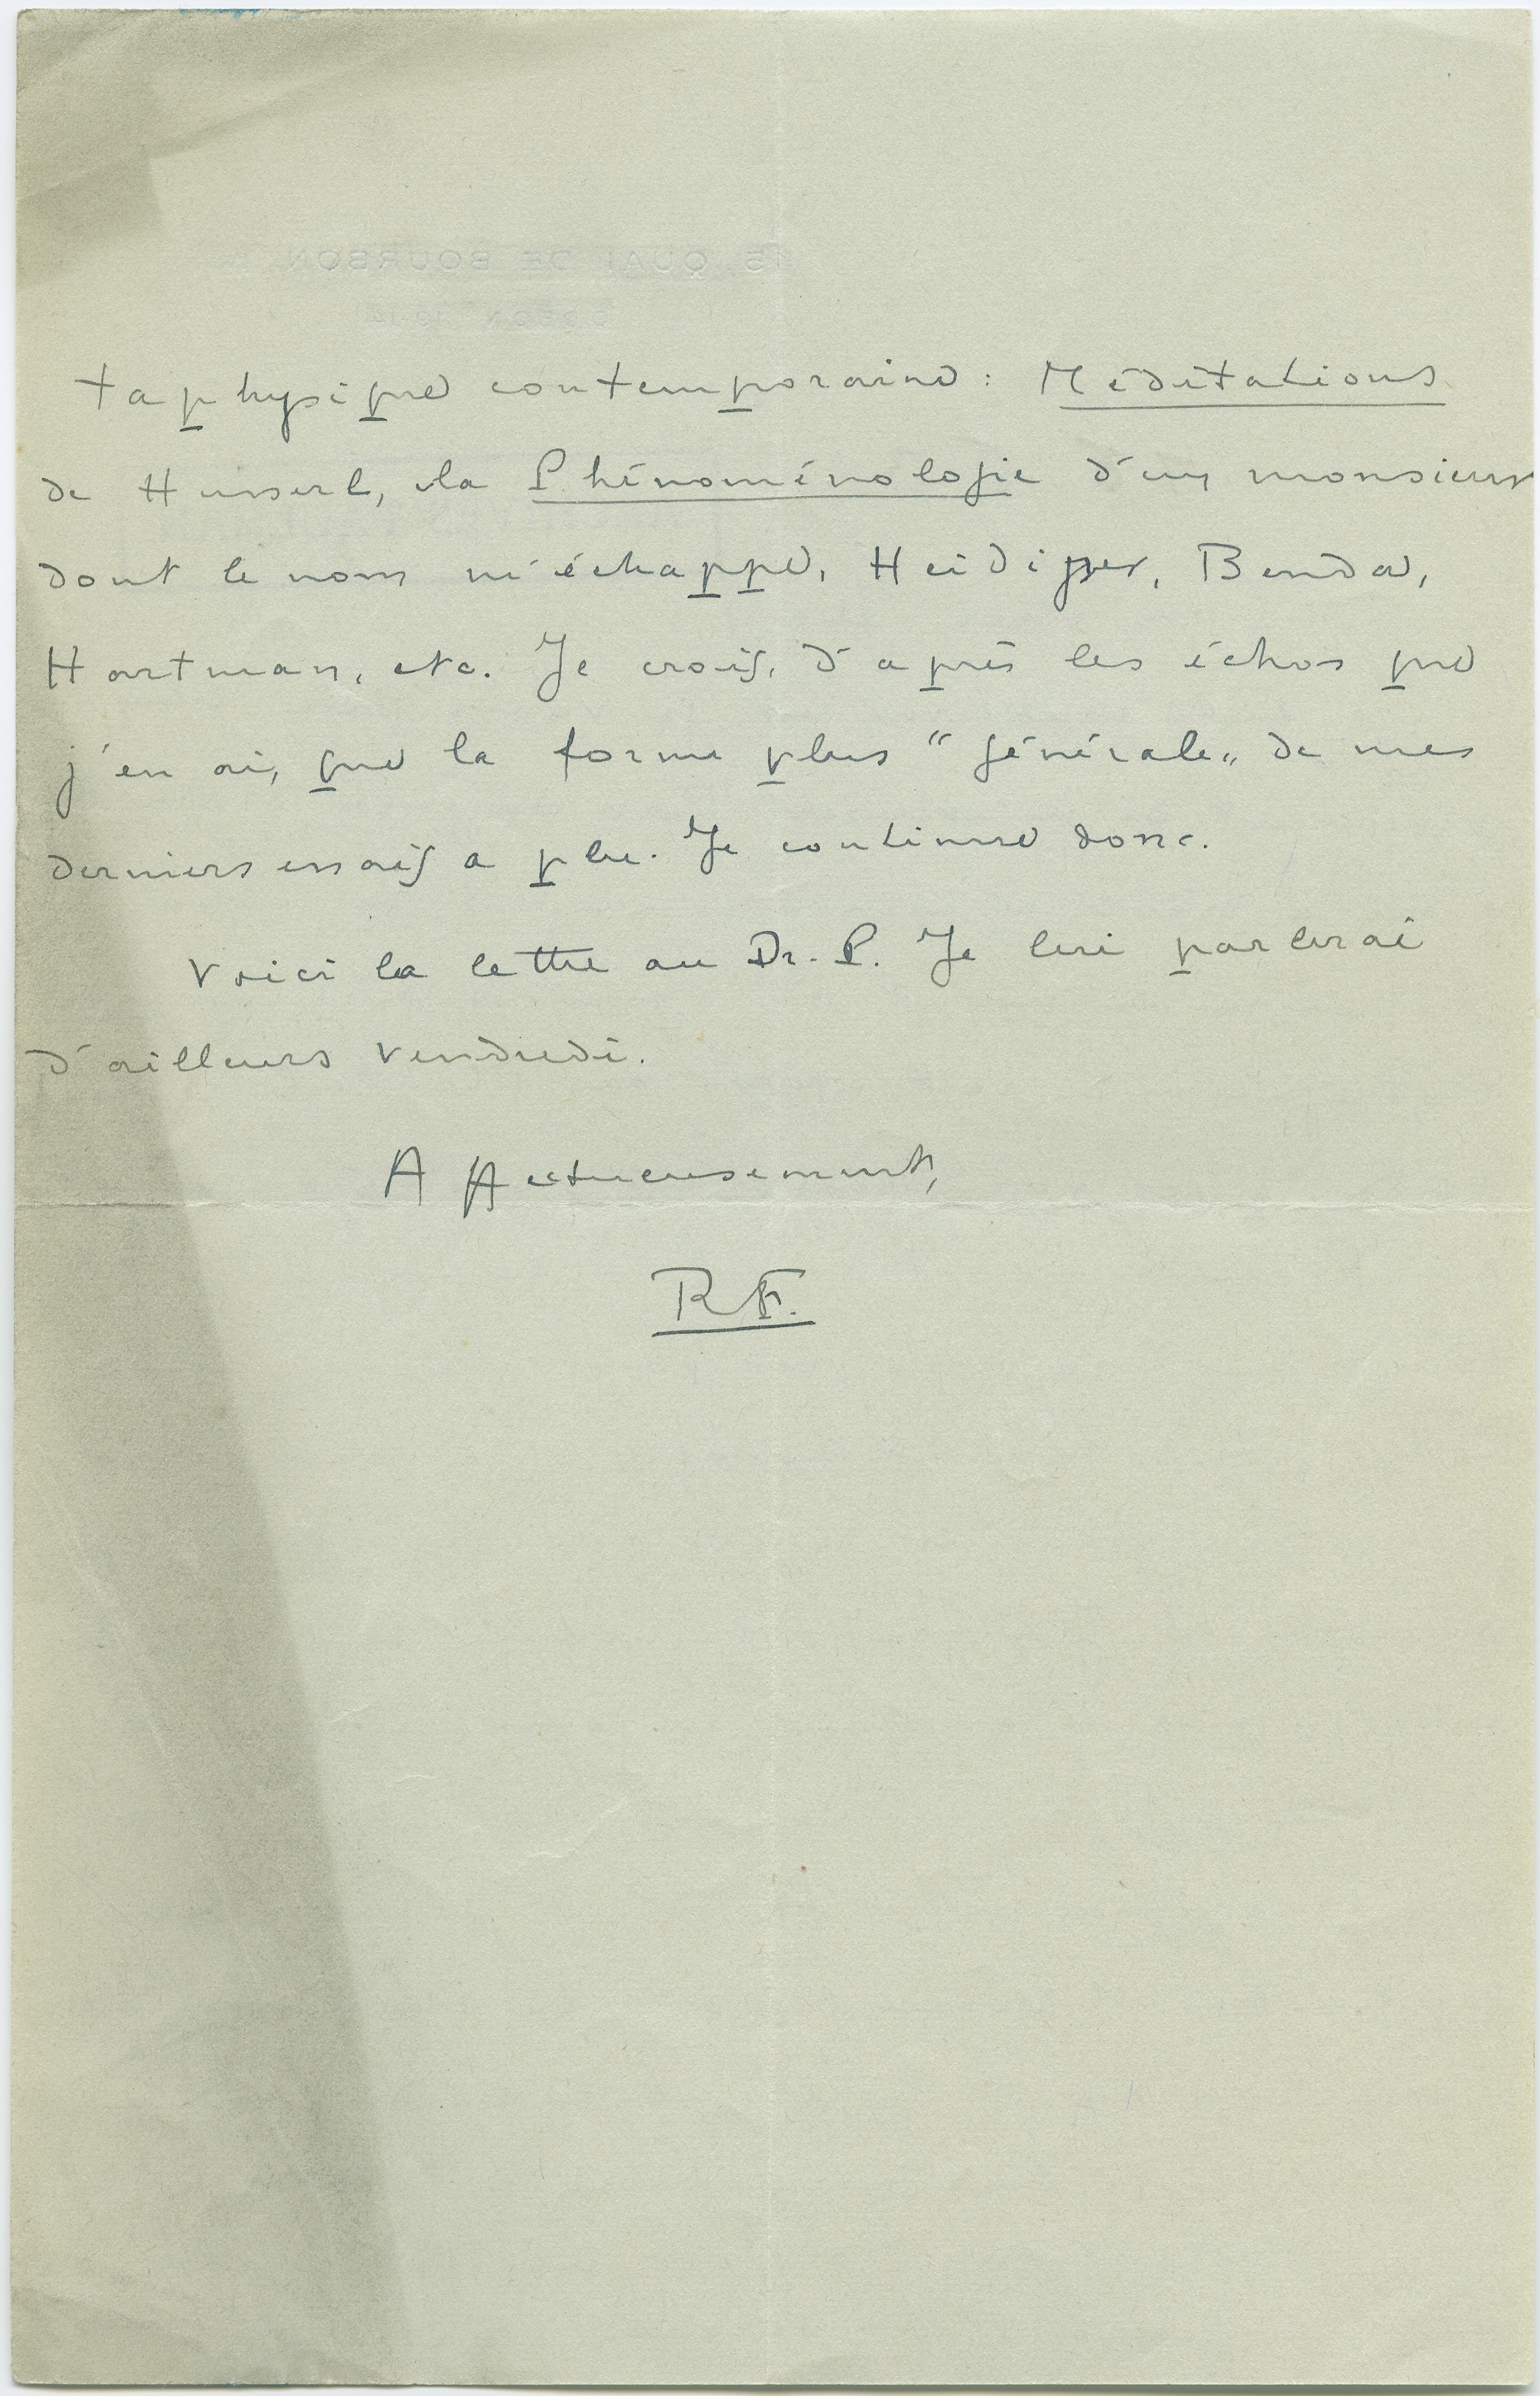 15, QUAI DE BOURBON
taphysique contemporaine : Méditations
de Husserl, la Phénoménologie d'un monsieur
dont le nom m'échappe, Heidigger, Benda,
Hartman, etc. Je crois, d'après les échos que
j'en ai, que la forme plus “générale„ de mes
derniers essais a plu. Je continue donc.
Voici la lettre au Dr. P. Je lui parlerai
d'ailleurs vendredi.
Affectueusement,
RF.